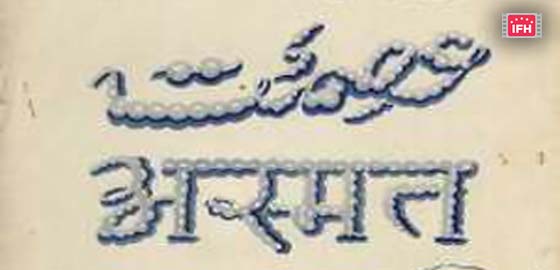 IFH
عصمت
अस्मत